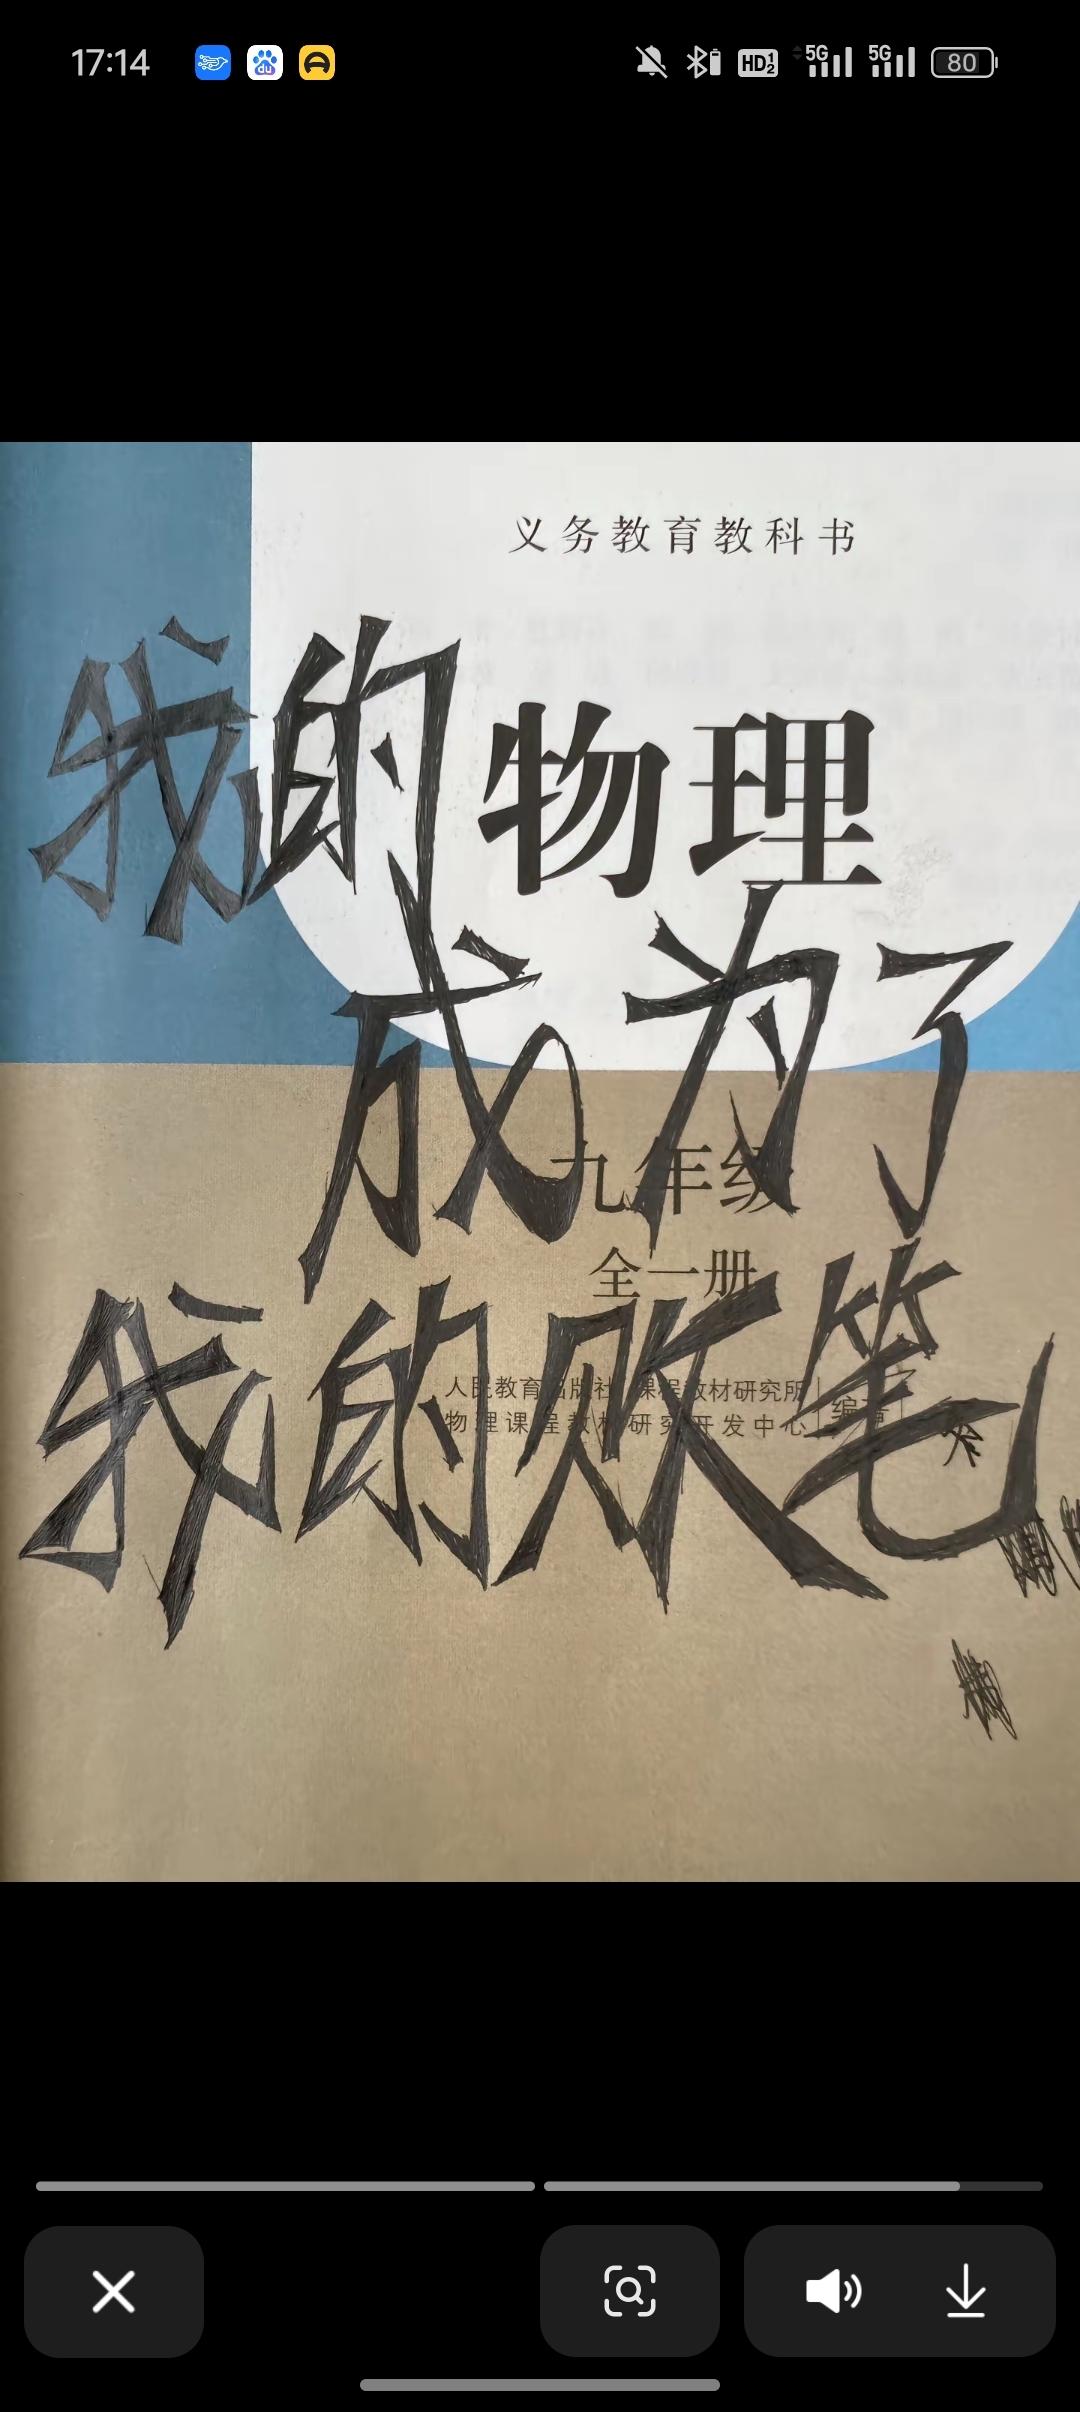 17:14
HD 1 2 5G 5G 80
义务教育教科书
我的物理
成为了
九年级
全一册
我的败笔
人民教育出版社 课程教材研究所
物理课程教材研究开发中心 编著